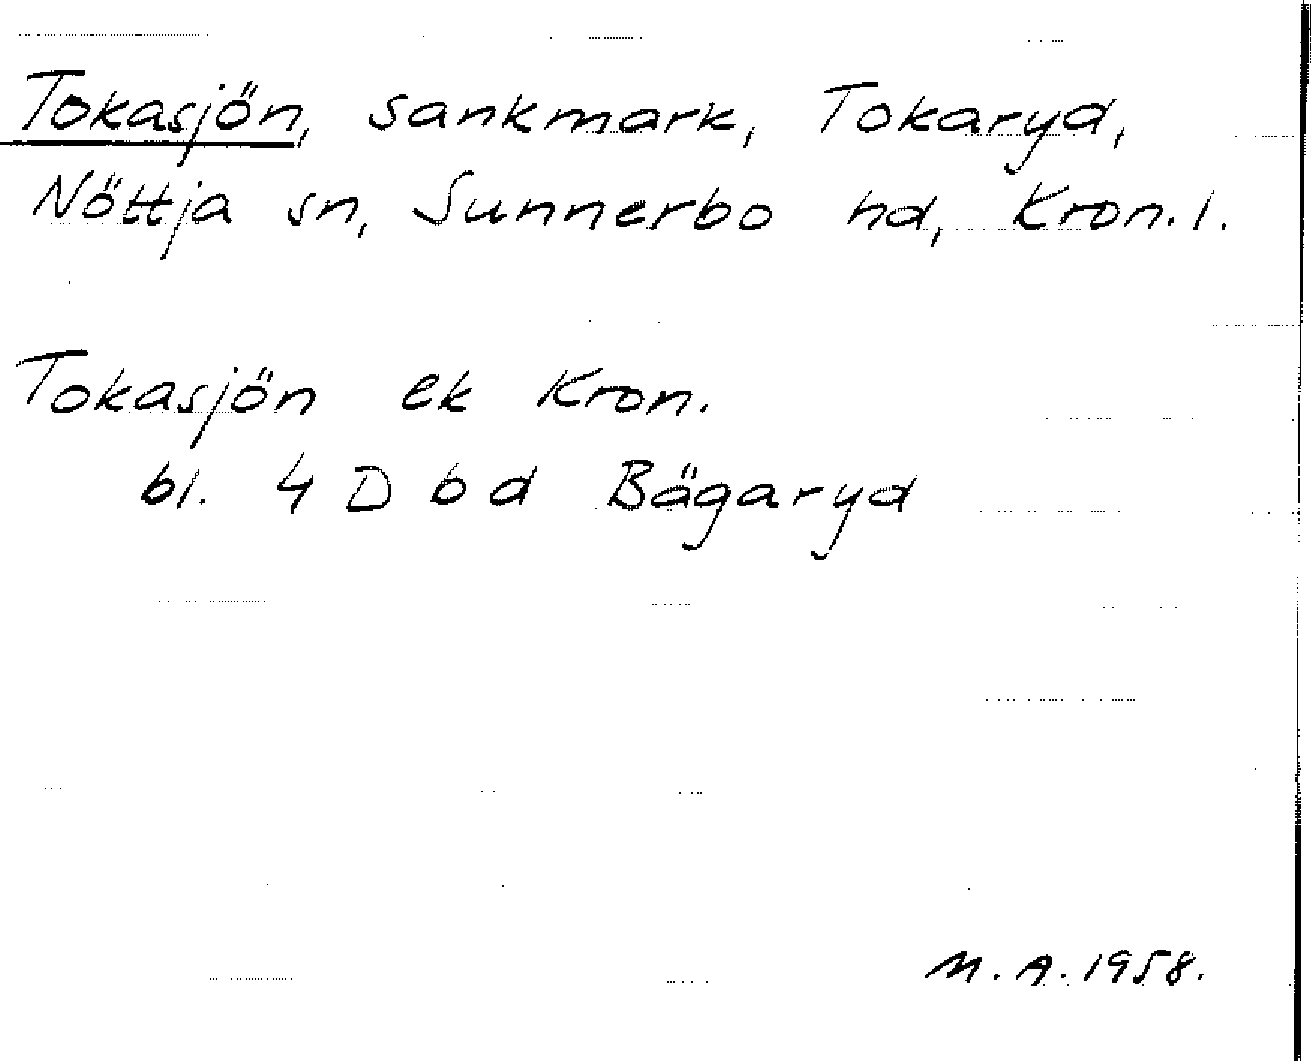 Tokasjön, sankmark, Tokaryd,
Nöttja sn, Sunnerbo hd, Kron. l.
Tokasjön ek Kron.
bl. 4 D b d Bägaryd
M. A. 1958.